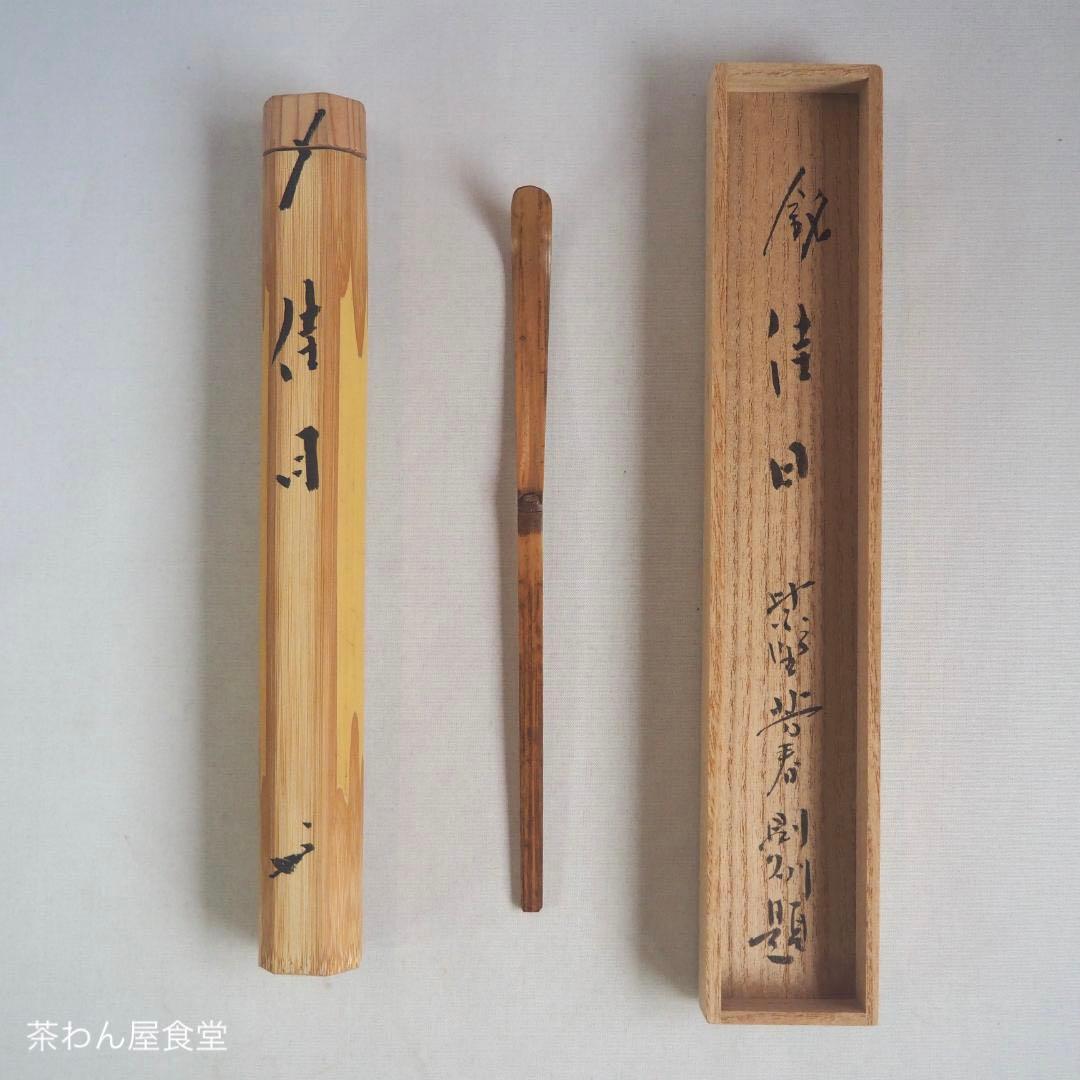 〆
佳日
銘 佳日 紫野芳春 則州題
茶わん屋食堂